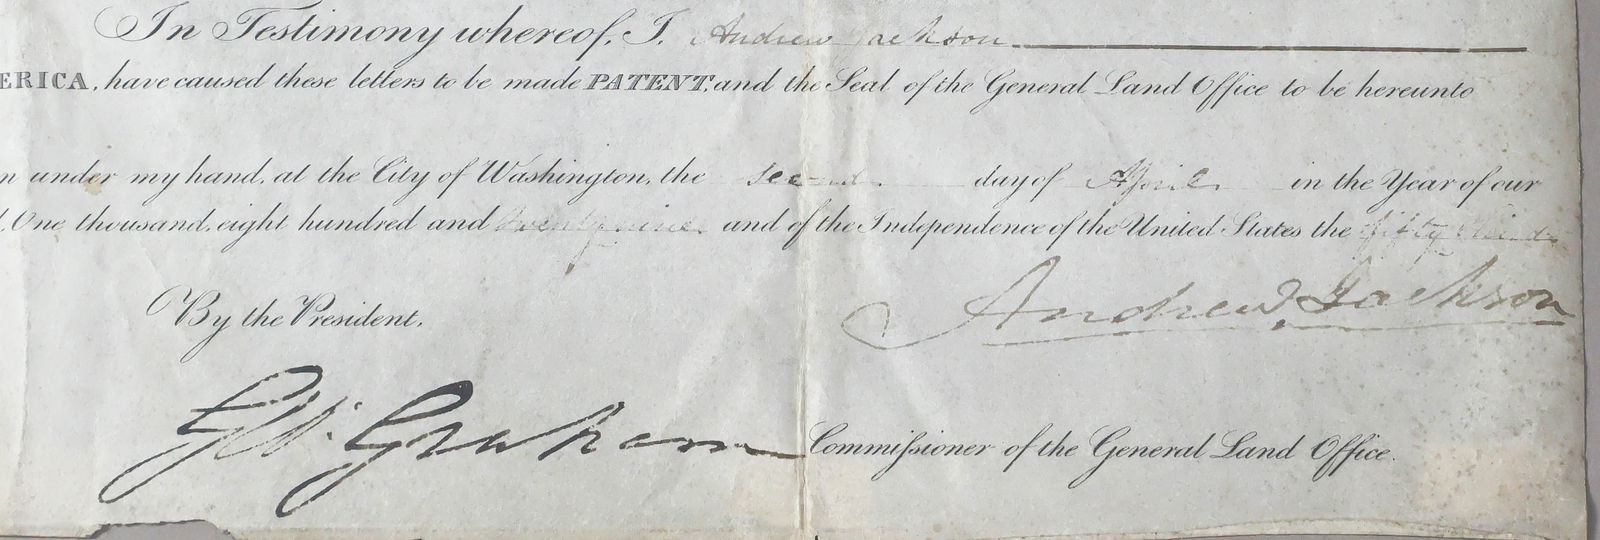 In Testimony whereof, I, Andrew Jackson
ERICA, have caused these letters to be made PATENT, and the Seal of the General Land Office to be hereunto
n under my hand, at the City of Washington, the second day of April in the Year of our
d, One thousand, eight hundred and twenty nine and of the Independence of the United States the fifty third
Andrew Jackson
By the President,
Geo: Graham Commissioner of the General Land Office.